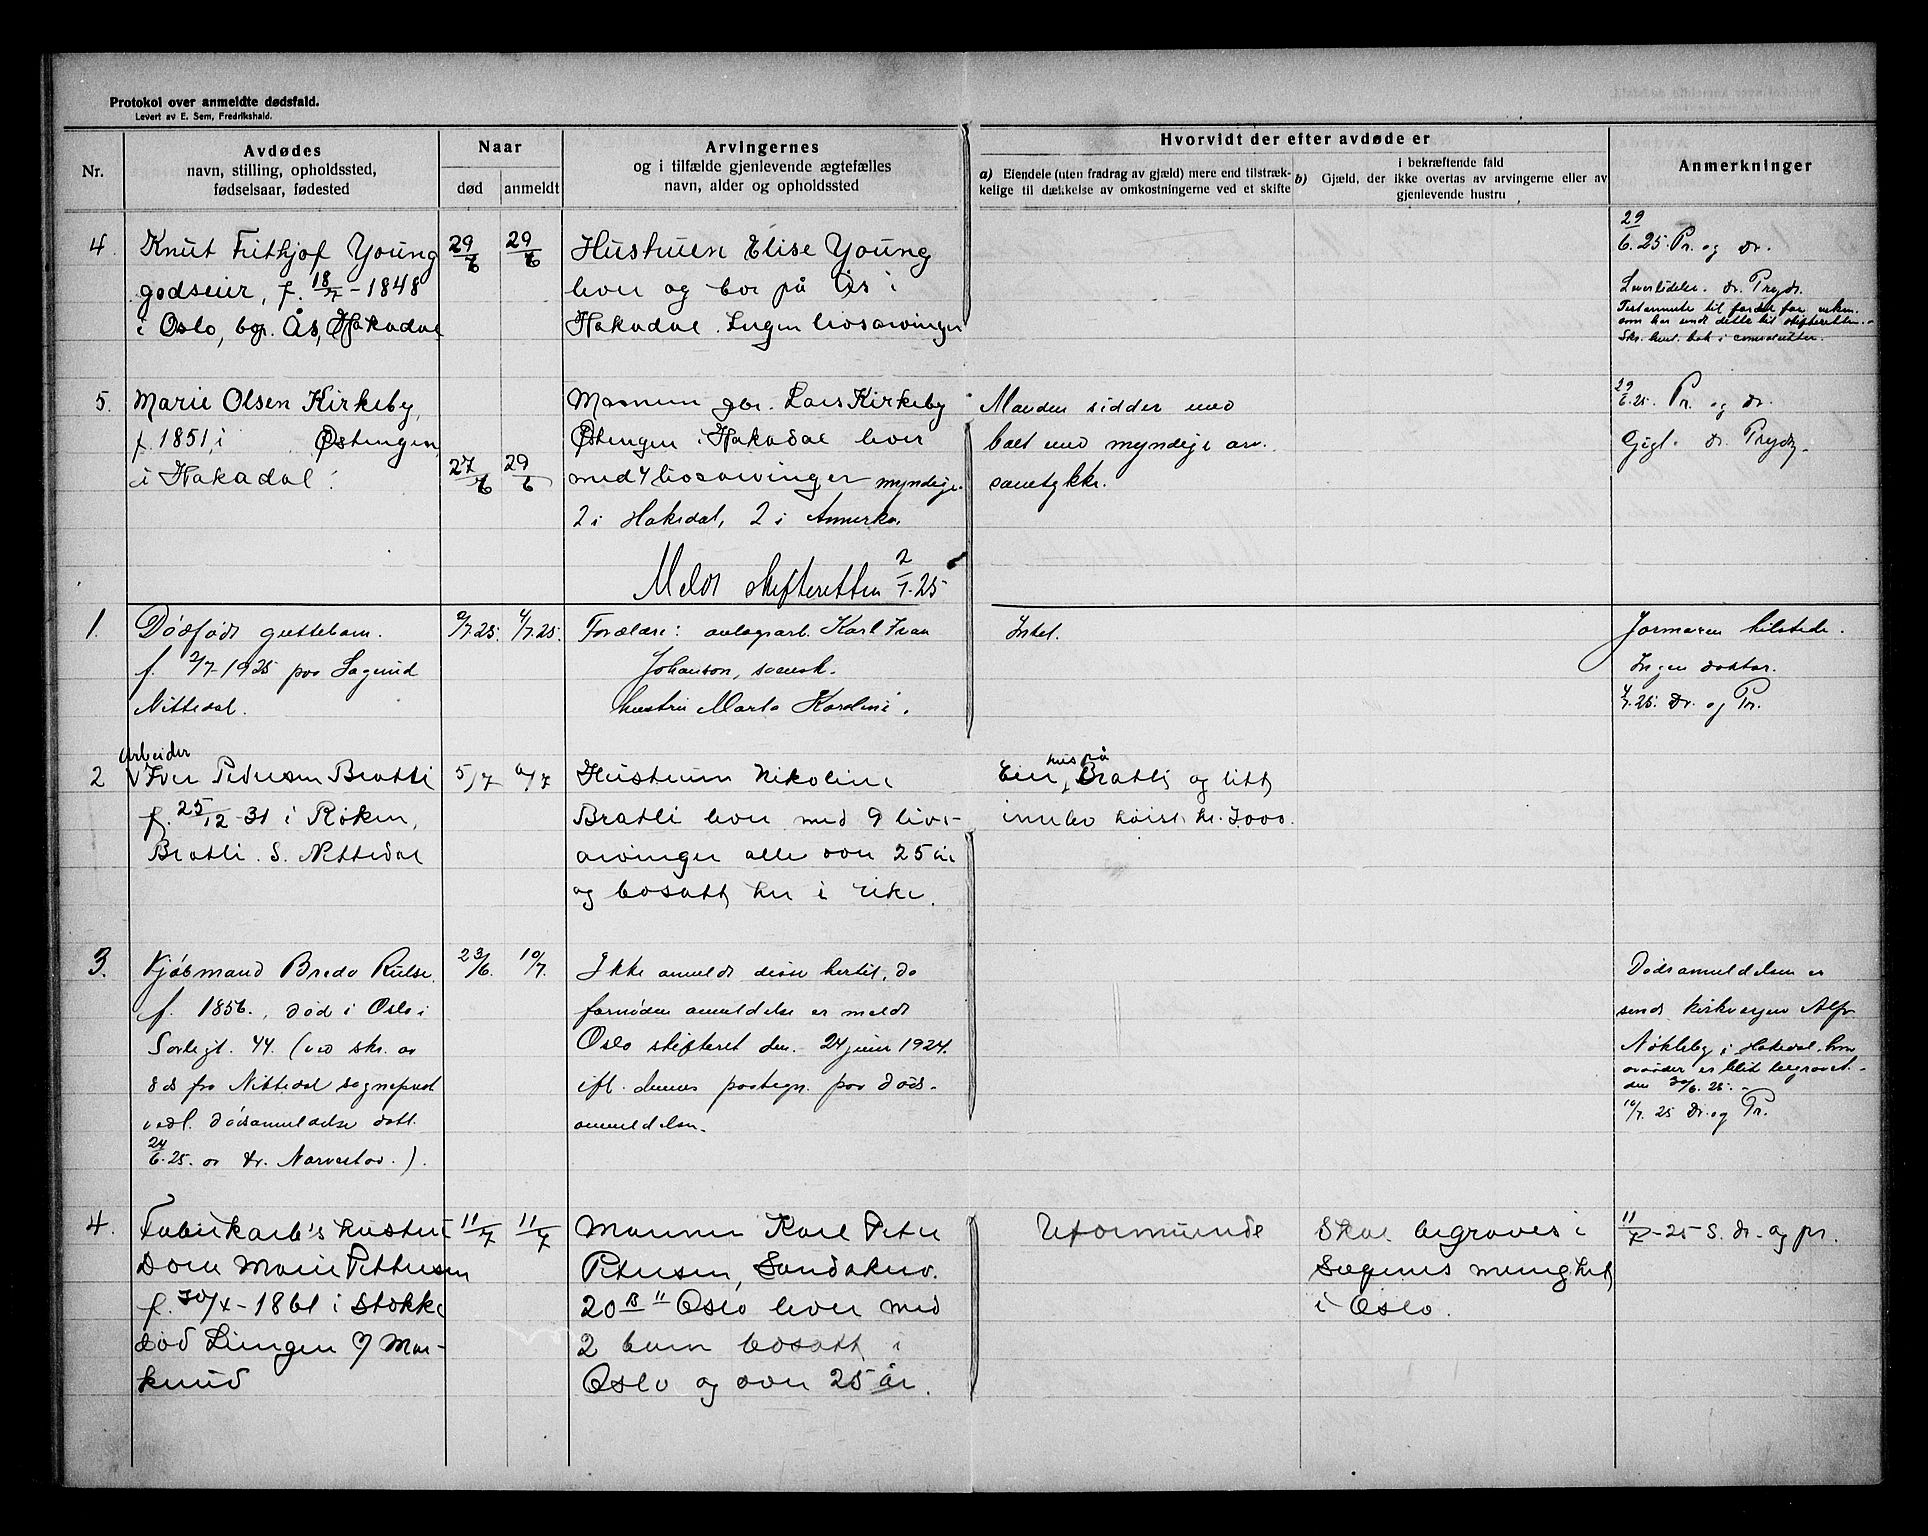 Protokol over anmeldte dødsfald.
Levert av E. Sem, Fredrikshald.
Nr.
Avdødes
navn, stilling, opholdssted,
fødselsaar, fødested
Naar
død
anmeldt
Arvingernes
og i tilfælde gjenlevende ægtefælles
navn, alder og opholdssted
Hvorvidt der efter avdøde er
a) Eiendele (uten fradrag av gjæld) mere end tilstræk-
kelige til dækkelse av omkostningerne ved et skifte
i bekræftende fald
b) Gjæld, der ikke overtas av arvingerne eller av
gjenlevende hustru
Anmerkninger
4.
Knut Frithjof Young
godseier, f. 18/7 - 1848
i Oslo, bop. Ås, Hakadal
29/6
29/6
Hustruen Elise Young
lever og bor på Ås i
Hakadal. Ingen livsarvinger
29
6.25. Pr. og dr.
dr. Prydz.
Testamente til
som har sendt dette til skifteretten.
5.
Marie Olsen Kirkeby,
f. 1851, i Østengen
i Hakadal.
27/6
29/6
Mannen gbr. Lars Kirkeby
Østengen i Hakadal lever
med 4 livsarvinger myndige.
2 i Hakedal, 2 i Amerka.
Manden sidder med
boet med myndige arv.
samtykke.
29
6.25. Pr. og dr.
Gigt. dr. Prydz.
Meldt skifteretten 2/7.25
1.
Dødfødt guttebarn.
f. 2/7-1925 paa Sagund
Nittedal.
2/7 25.
4/7.25.
Forældre: anlegsarb. Karl Ivan
Johanson, svensk.
hustru Marta Karoline.
Intet.
Jormoren tilstede.
Ingen doktor.
4/7.25. Dr. og Pr.
2
Arbeider
Iver Pedersen Bratli
f. 25/12-31 i Røken,
Bratli. S. Nittedal
5/7
6/7
Hustruen Nikoline
Bratli lever med 9 livs-
arvinger alle over 25 år
og bosatt her i rike.
Eier hus på Bratli og litt
innbo høist kr. 3000.
3.
Kjøbmand Bredo
f. 1856., død i Oslo i
44. (ved skr. av
8 ds fra Nittedal sogneprest
vedl. dødsanmeldelse datt.
24/6.25. av dr. Narvestad.).
23/6.
10/7.
Ikke anmeldt disse hertil, da
fornøden anmeldelse er meldt
Oslo skifteret den. 24 juni 1924.
ifl. dennes paategn. paa døds-
anmeldelsen.
Dødsanmeldelsen er
sendt kirkvergen Alfr.
Nøkleby i Hakedal, hvor
avdøde er blit begravet.
den 30/6.25.-
10/7.25 Dr. og Pr.
4.
Fabrikarb's hustru
Dora Marie Pettersen
f. 30/X-1861 i Stokke
død Lüngen 9 Mar-
kerud
11/7
11/7
Mannen Karl Peter
Petersen, Sandakerv.
20 B" Oslo lever med
2 barn bosatt i
Oslo og over 25 år.
Uformuende
Skal begraves i
Sagenes menighet
i Oslo.
11/7-25 S. dr. og pr.